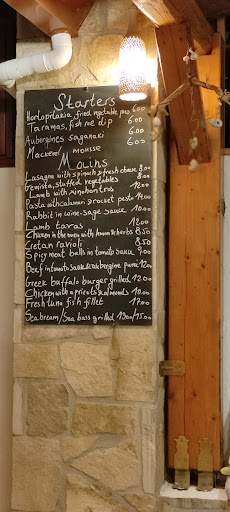 Starters
Hortopitakia fried vegetable pies 6.00
Taramas, fish roe dip 6.00
Aubergines saganaki 6.00
Mackerel mousse
Mains
Lasagna with spinach & fresh cheese 8.00
Gemista, stuffed vegetables 8.00
Lamb with xinohontros 12.00
Pasta with calamari & rocket pesto 12.00
Rabbit in wine-sage sauce 10.00
Lamb taras 12.00
Chicken in the oven with honey & herbs 8.50
Cretan ravioli 8.50
Spicy meat balls in tomato sauce 9.00
Beef in tomato sauce & aubergine puree 12.00
Greek buffalo burger grilled 12.00
Chicken with apricots & almonds 10.00
Fresh tuna fish fillet 17.00
Seabream/Sea bass grilled 13.00/15.00